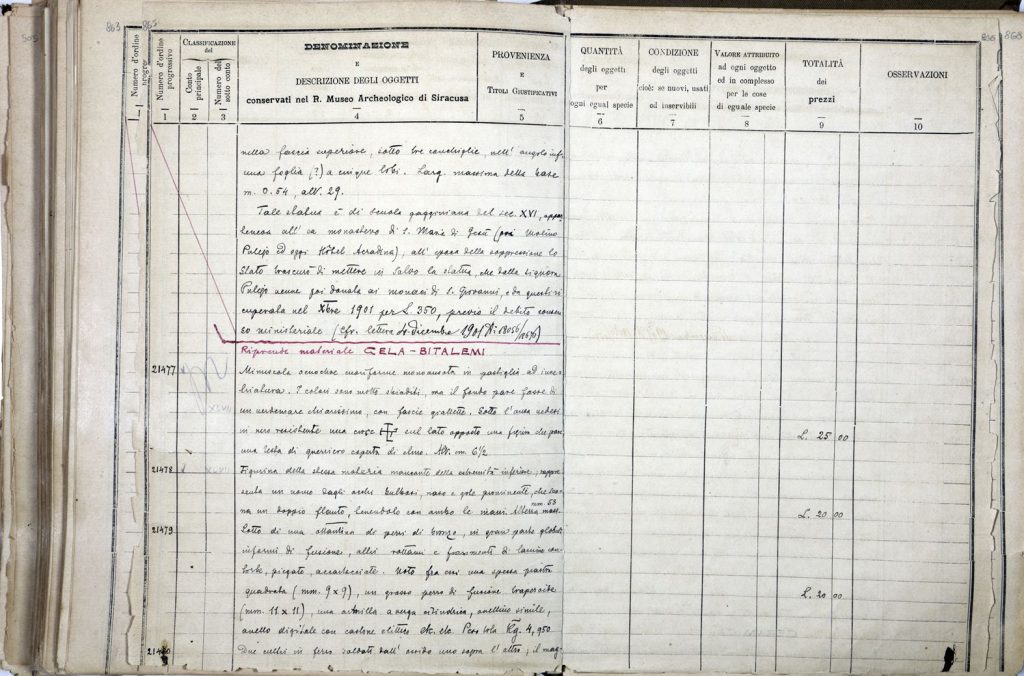 505
863
865
865
868
Numero d'ordine
progres
1
Numero d'ordine
progressivo
1
CLASSIFICAZIONE
del
Conto
principale
2
Numero del
sotto conto
3
DENOMINAZIONE
E
DESCRIZIONE DEGLI OGGETTI
conservati nel R. Museo Archeologico di Siracusa
4
PROVENIENZA
E
TITOLI GIUSTIFICATIVI
5
QUANTITÀ
degli oggetti
per
ogni egual specie
6
CONDIZIONE
degli oggetti
cioè: se nuovi, usati
od inservibili
7
VALORE ATTRIBUITO
ad ogni oggetto
ed in complesso
per le cose
di eguale specie
8
TOTALITÀ
dei
prezzi
9
OSSERVAZIONI
10
nella fascia superiore, sotto tre conchiglie, nell' angolo inf.
una foglia (?) a cinque lobi. Larg. massima della base
m. 0.54, alt. 29.
Tale statua è di scuola gaginiana del sec. XVI, appar
teneva all' ex monastero di S. Maria di Gesù (poi Molino
Pulejo ed oggi Hôtel Acradina), all' epoca della soppressione lo
Stato trascurò di mettere in salvo la statua, che dalla signora
Pulejo venne poi donata ai monaci di S. Giovanni, e da questi ri
cuperata nel Xbre 1901 per L. 350, previo il debito consen
so ministeriale (Cfr. lettera 4 dicembre 1901 N.i 18056/18676)
Riprende materiale GELA-BITALEMI
21477
Minuscola oenochoe cuoriforme monoansata in pastiglia ad inve
triatura. I colori sono molto sbiaditi, ma il fondo pare fosse di
un verdemare chiarissimo, con fascie giallette. Sotto l'ansa vedesi
in nero resistente una croce sul lato opposto una figura che pare
una testa di guerriero coperta di elmo. Alt. cm. 6½
L. 25 00
21478
Figurina della stessa materia mancante della estremità inferiore; rappre
senta un uomo dagli occhi bulbosi, naso e gote prominenti, che suo
na un doppio flauto, tenendolo con ambo le mani. Altezza mass.
mm. 53
L. 20 00
21479
Lotto di una ottantina di pezzi di bronzo, in gran parte globuli
informi di fusione, altri rottami e frammenti di lamine con
torte, piegate, accartocciate. Noto fra essi una spessa piastra
quadrata (mm. 9 x 9), un grosso pezzo di fusione trapezoide
(mm. 11 x 11), una armilla a verga cilindrica, anellino simile,
anello digitale con castone elittico etc. etc. Peso tot. Kg. 4,950
L. 20 00
21480
Due cultri in ferro saldati dall' ossido uno sopra l' altro; il mag-